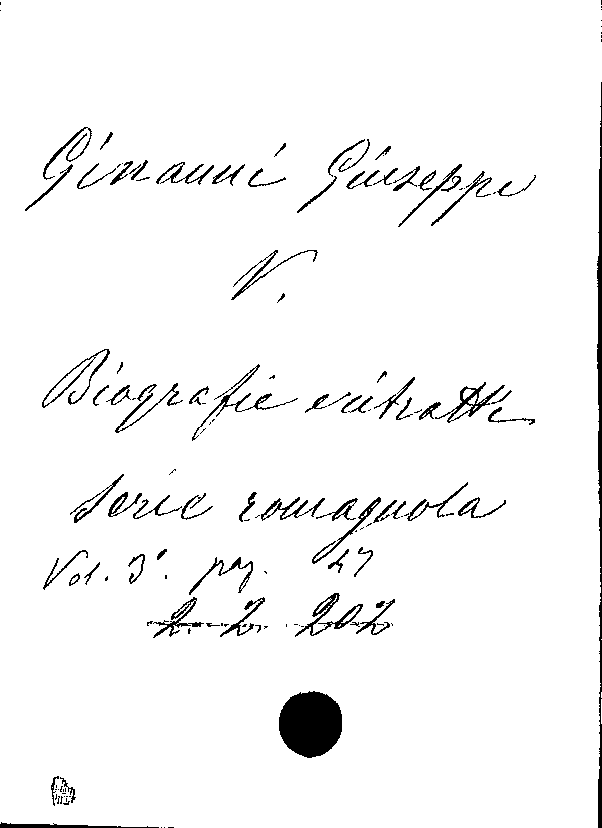 Ginanni Giuseppe
V.
Biografie e ritratti
serie romagnola
Vol. 3°. pag. 47
2. 2. 202